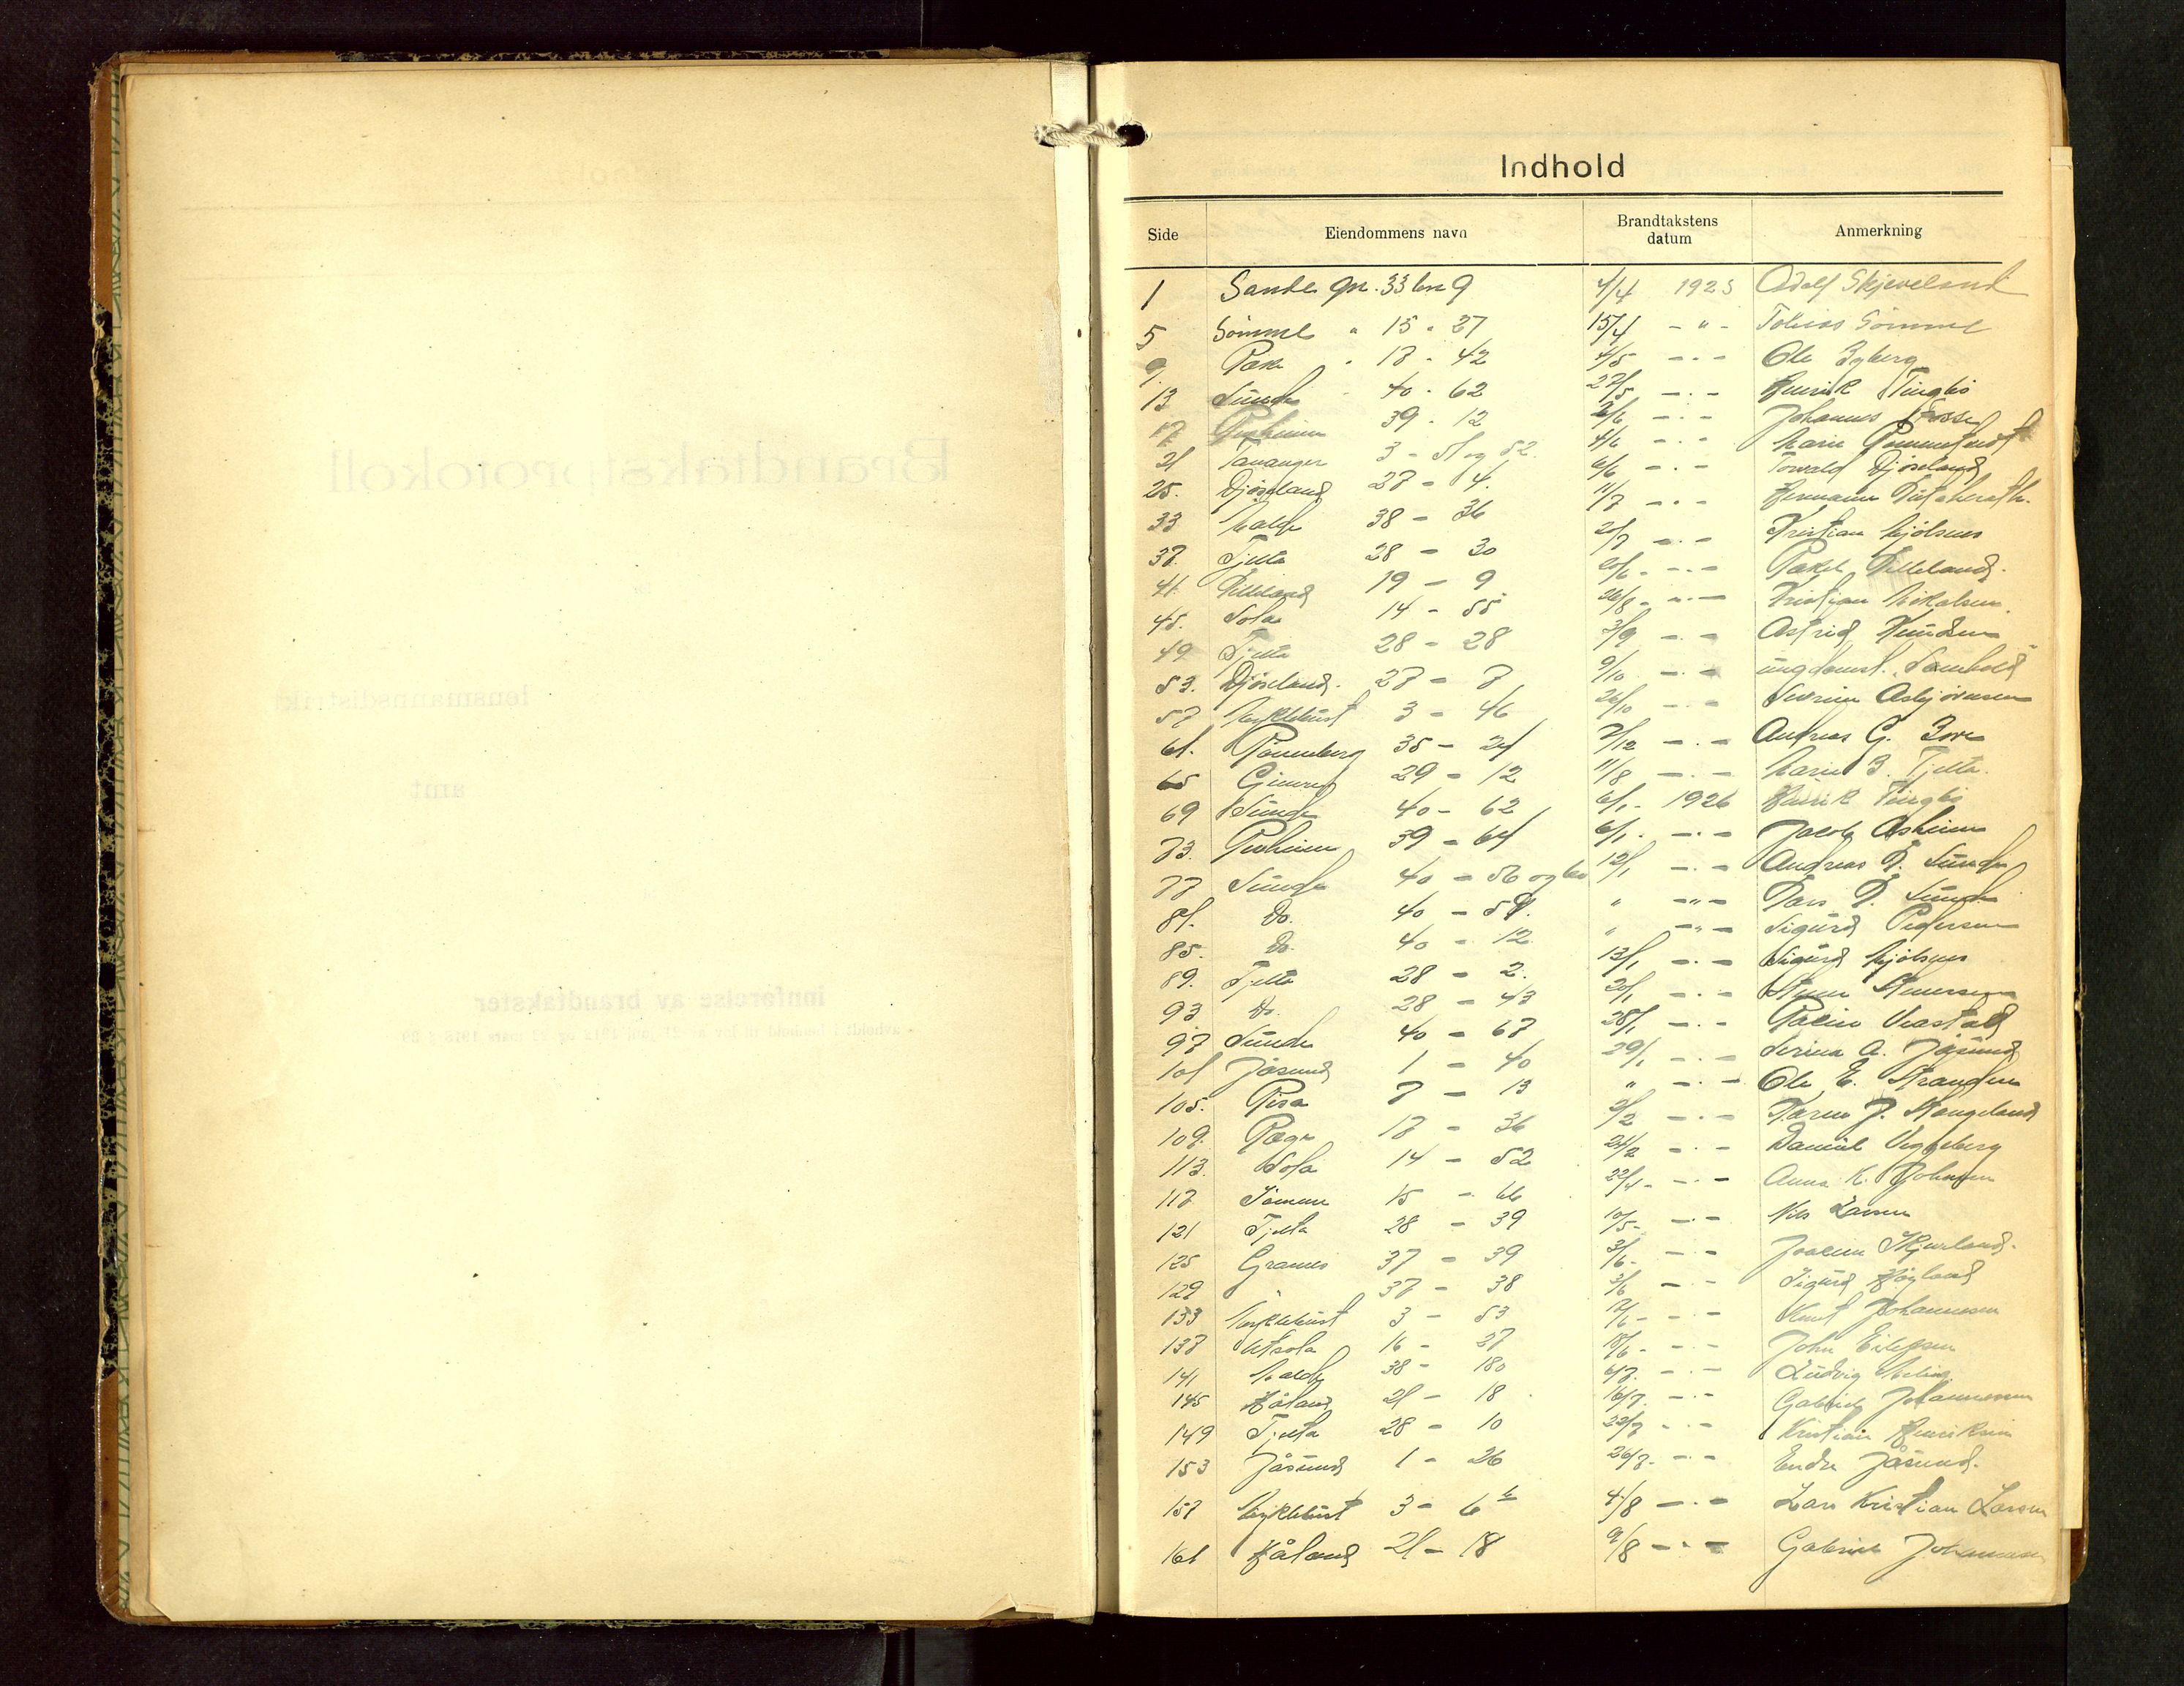 Indhold
Side Eiendommens navn Brandtakstens datum Anmerkning
1 Sande gn. 33 bn 9 4/4 1925 Adolf Skjeveland
5 Sømme " 15 " 27 15/4 - " - Tobias Sømme
9. Ræge - 17 - 42 4/5 - - - Ole Igberg
13 Sunde - 40 - 62 27/5 - - - Henrik Tingbø
17 39 - 12 2/6 - - - Johannes Fosse
21 Tananger 3 - 51 og 52. 4/6 - - - Marie
25. Djøseland 27 - 4. 6/6 - - - Torvald Djøseland
33 Malde 38 - 36 11/7 - - - Hermann
37. Tjelta 28 - 30 20/7 - - - Kristian Mjølsnes
41. 19 - 9 20/6 - - - Rakel
45. Sola 14 - 55 26/8 - - - Kristian Mikalsen.
49 Tjelta 28 - 28 3/9 - - - Astrid Knudsen
53. Djøseland. 27 - 7 9/10 - - - ungdomsl. "Samhold"
57 Myklebust 3 - 46 26/10 - - - Severin Asbjørnsen
61. Rønneberg 35 - 24 7/12 - - - Andreas G. Bore
65 Gimre 29 - 12 11/8 - - - Marie B. Tjelta.
69 Sunde 40 - 62 6/1 - 1926 Henrik Tingbø
73. Revheim 39 - 64 6/1 - - - Jacob Asheim
77 Sunde 40 - 56 og 60 12/1 - - - Andreas D. Sunde
81. Do. 40 - 59. " - " - Lars D. Sunde
85. Do. 40 - 12 " - " - Sigurd Pedersen
89. Tjelta 28 - 2. 13/1 - - - Sigurd Mjølsnes
93 Do. 28 - 43 20/1 - - -
97 Sunde 40 - 67 28/1 - - -
101 Jåsund 1 - 40 29/1 - - - Serina A. Jåsund
105. Risa 7 - 13 " - - - Ole E.
109. Ræge 17 - 36 2/2 - - - Karen J. Stangeland
113. Sola 14 - 52 24/2 - - - Daniel
117 Sømme 15 - 66 22/4 - - - Anna K. Johnsen
121 Tjelta 28 - 39 10/5 - - - Nils Larsen
125 Grannes 37 - 39 3/6 - - - Joakim
129 " 37 - 38 3/6 - - - Sigurd Høyland
133 Myklebust 3 - 53 12/6 - - - Knut Johannesen
137 Utsola 16 - 27 18/6 - - - John
141 Malde 38 - 180 6/7 - - - Ludvig
145 Håland 21 - 18 16/7 - - - Gabriel Johannessen
149 Tjelta 28 - 10 22/7 - - - Kristian Henriksen
153 Jåsund 1 - 26 26/7 - - - Endre Jåsund.
157 Myklebust 3 - 6 4/8 - - - Lars Kristian Larsen
161 Håland 21 - 18 9/8 - - - Gabriel Johannessen